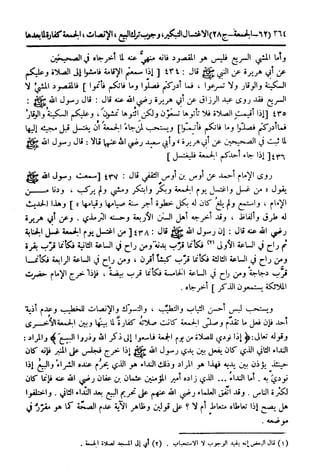 ٣٦٤ (٦٢-الجمعة-ج٢٨) الاغتسال، التبكير، وجوب ترك البيع، الإنصات، الجمعة كفارة لما بعدها
وأما المشي السريع فليس هو المقصود فانه منهي عنه لما أخرجاه في الصحيحين
عن أبي هريرة عن النبي ﷺ قال : ٤٣٤ [ إذا سمعتم الإقامة فامشوا إلى الصلاة وعليكم
السكينة والوقار ولا تسرعوا ، فما أدركتم فصلوا وما فاتكم فأتموا ] فالمقصود المشي لا
السريع فقد روى عبد الرزاق عن أبي هريرة رضي الله عنه قال : قال رسول الله ﷺ :
٤٣٥ [ إذا أقيمت الصلاة فلا تأتوها تسعون ولكن ائتوها تمشون ، وعليكم السكينة والوقار
فما أدركتم فصلوا وما فاتكم فأتموا ] ويستحب لمن جاء الجمعة أن يغتسل قبل مجيئه إليها
لما ثبت في الصحيحين عن أبي هريرة وأبي سعيد رضي الله عنهما قالا : قال رسول الله ﷺ
٤٣٦ [ إذا جاء أحدكم الجمعة فليغتسل ]
روى الإمام أحمد عن أوس بن أوس الثقفي قال : ٤٣٧ [ سمعت رسول الله ﷺ
يقول « من غسل واغتسل يوم الجمعة وبكر وابتكر ومشى ولم يركب ، ودنا من
الإمام ، واستمع ولم يلغ كان له بكل خطوة أجر سنة صيامها وقيامها » ] وهذا الحديث
له طرق وألفاظ ، وقد أخرجه أهل السنن الأربعة وحسنه الترمذي . وعن أبي هريرة
رضي الله عنه قال : إن رسول الله ﷺ قال : ٤٣٨ [ من اغتسل يوم الجمعة غسل الجنابة
ثم راح في الساعة الأولى (٢) فكأنما قرب بدنة ومن راح في الساعة الثانية فكأنما قرب بقرة
ومن راح في الساعة الثالثة فكأنما قرب كبشا أقرن ، ومن راح في الساعة الرابعة فكأنما
قرب دجاجة ومن راح في الساعة الخامسة فكأنما قرب بيضة ، فإذا خرج الإمام حضرت
الملائكة يستمعون الذكر ] أخرجاه .
ويستحب لبس أحسن الثياب والتطيّب ، والتسوك والإنصات للخطيب وعدم أذية
أحد فإن فعل ما تقدّم وصلى الجمعة كانت صلاته كفارة لما بينها وبين الجمعة الأخرى
وقوله تعالى : ﴿ إذا نودي للصلاة من يوم الجمعة فاسعوا إلى ذكر الله وذروا البيع ﴾ والمراد :
النداء الثاني الذي كان يفعل بين يدي رسول الله ﷺ إذا خرج فجلس على المنبر فإنه كان
حينئذ يؤذن بين يديه فهذا هو المراد وذلك النداء هو الذي يحرم عنده الشراء والبيع إذا
نودي به . أما النداء ... الذي زاده أمير المؤمنين عثمان بن عفان رضي الله عنه فإنما كان
لكثرة الناس . وقد اتفق العلماء رضي الله عنهم على تحريم البيع بعد النداء الثاني . واختلفوا
هل يصح إذا تعاطاه متعاط أم لا ؟ على قولين وظاهر الآية عدم الصحة كما هو مقرر في
موضعه .
(١) قال البعض إنه يفيد الوجوب لا الاستحباب . (٢) أي إلى المسجد لصلاة الجمعة .